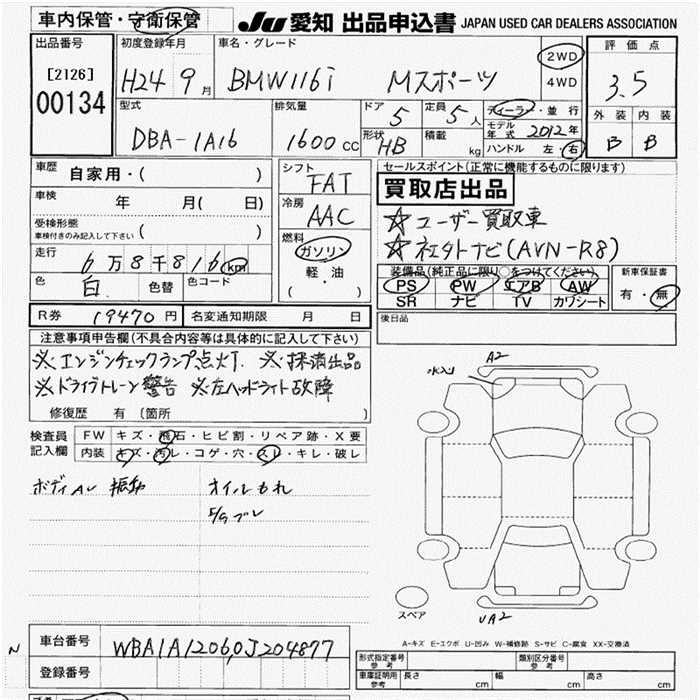 車内保管・守衛保管
JU 愛知 出品申込書 JAPAN USED CAR DEALERS ASSOCIATION
出品番号 初度登録年月 車名・グレード 評価点
[2126]
00134
H24 9月 BMW116i Mスポーツ 2WD 4WD 3.5
型式 排気量 ドア 定員 ディーラー・並行 外装 内装
DBA-1A16 1600cc 5 5人 モデル年式 2012年 B B
形状 HB 積載 kg ハンドル 左・右
車歴 自家用・( )
シフト FAT
セールスポイント(正常に機能するものに限ります)
買取店出品
車検 年 月( 日)
冷房 AAC
☆ユーザー買取車
受検形態 ( )
車検付きのみ記入して下さい
☆社外ナビ(AVN-R8)
走行 6万8千816km
燃料 ガソリン 軽・油 ( )
装備品(純正品に限り○をつけてください) 新車保証書
PS PW エアB AW 有・無
SR ナビ TV カワシート
色 白 色替 色コード
R券 19470円 名変通知期限 月 日
後日品
注意事項申告欄(不具合内容等は具体的に記入して下さい)
※エンジンチェックランプ点灯. ※採消出品
※ドライブトレーン警告 ※左ヘッドライト故障
修復歴 有 〔箇所 〕
水入り A2
検査員記入欄 FW キズ・飛石・ヒビ割・リペア跡・X要
内装 キズ・汚レ・コゲ・穴・スレ・キレ・破レ
ボディAU 振動 オイルもれ
スペア UA2
A-キズ E-エクボ U-凹み W-補修跡 S-サビ C-腐食 XX-交換済
N 車台番号 WBA1A12060J204877
登録番号
形式指定番号 参考 類別区分番号 参考
車庫証明用 参考 長さ cm 幅 cm 高さ cm